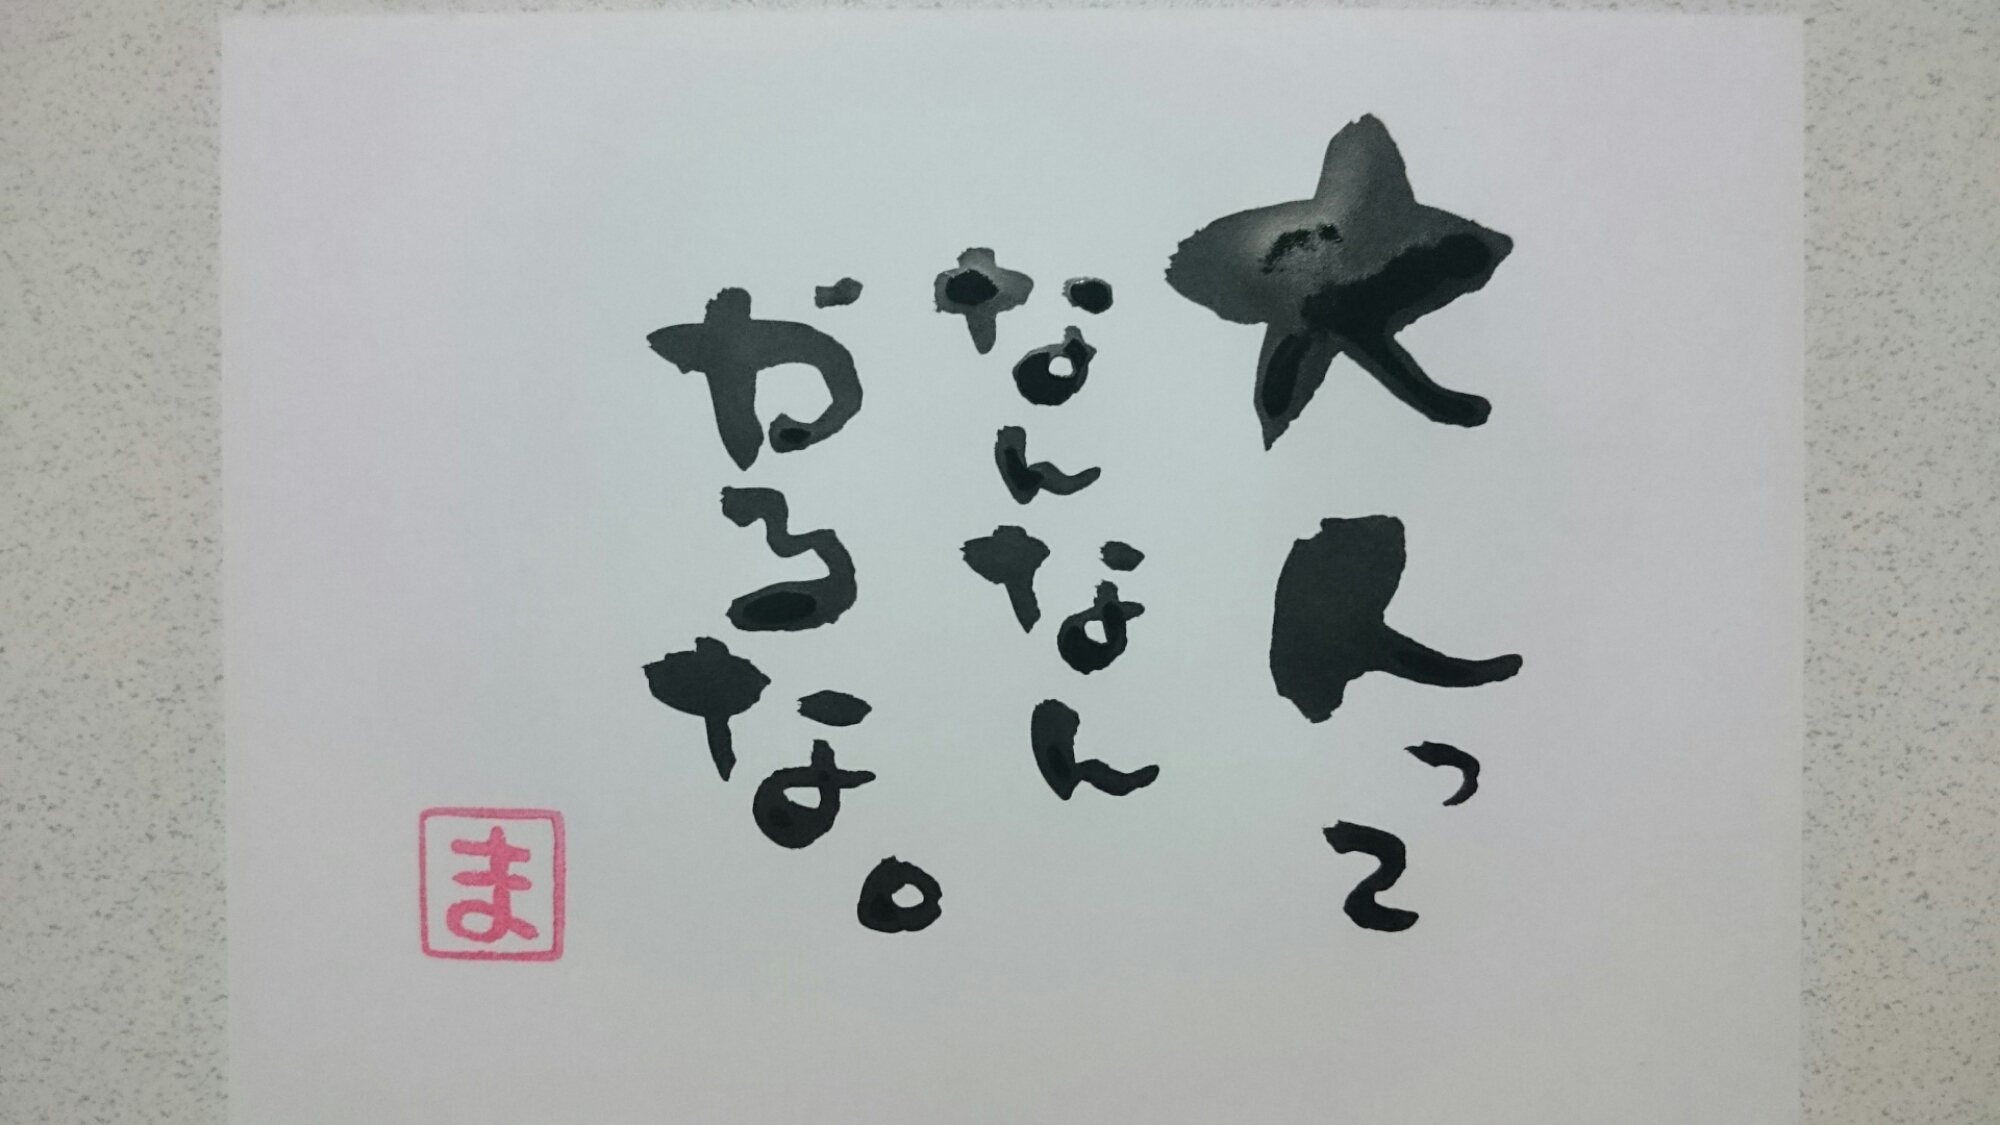 大人って
なんなん
やろな。
ま